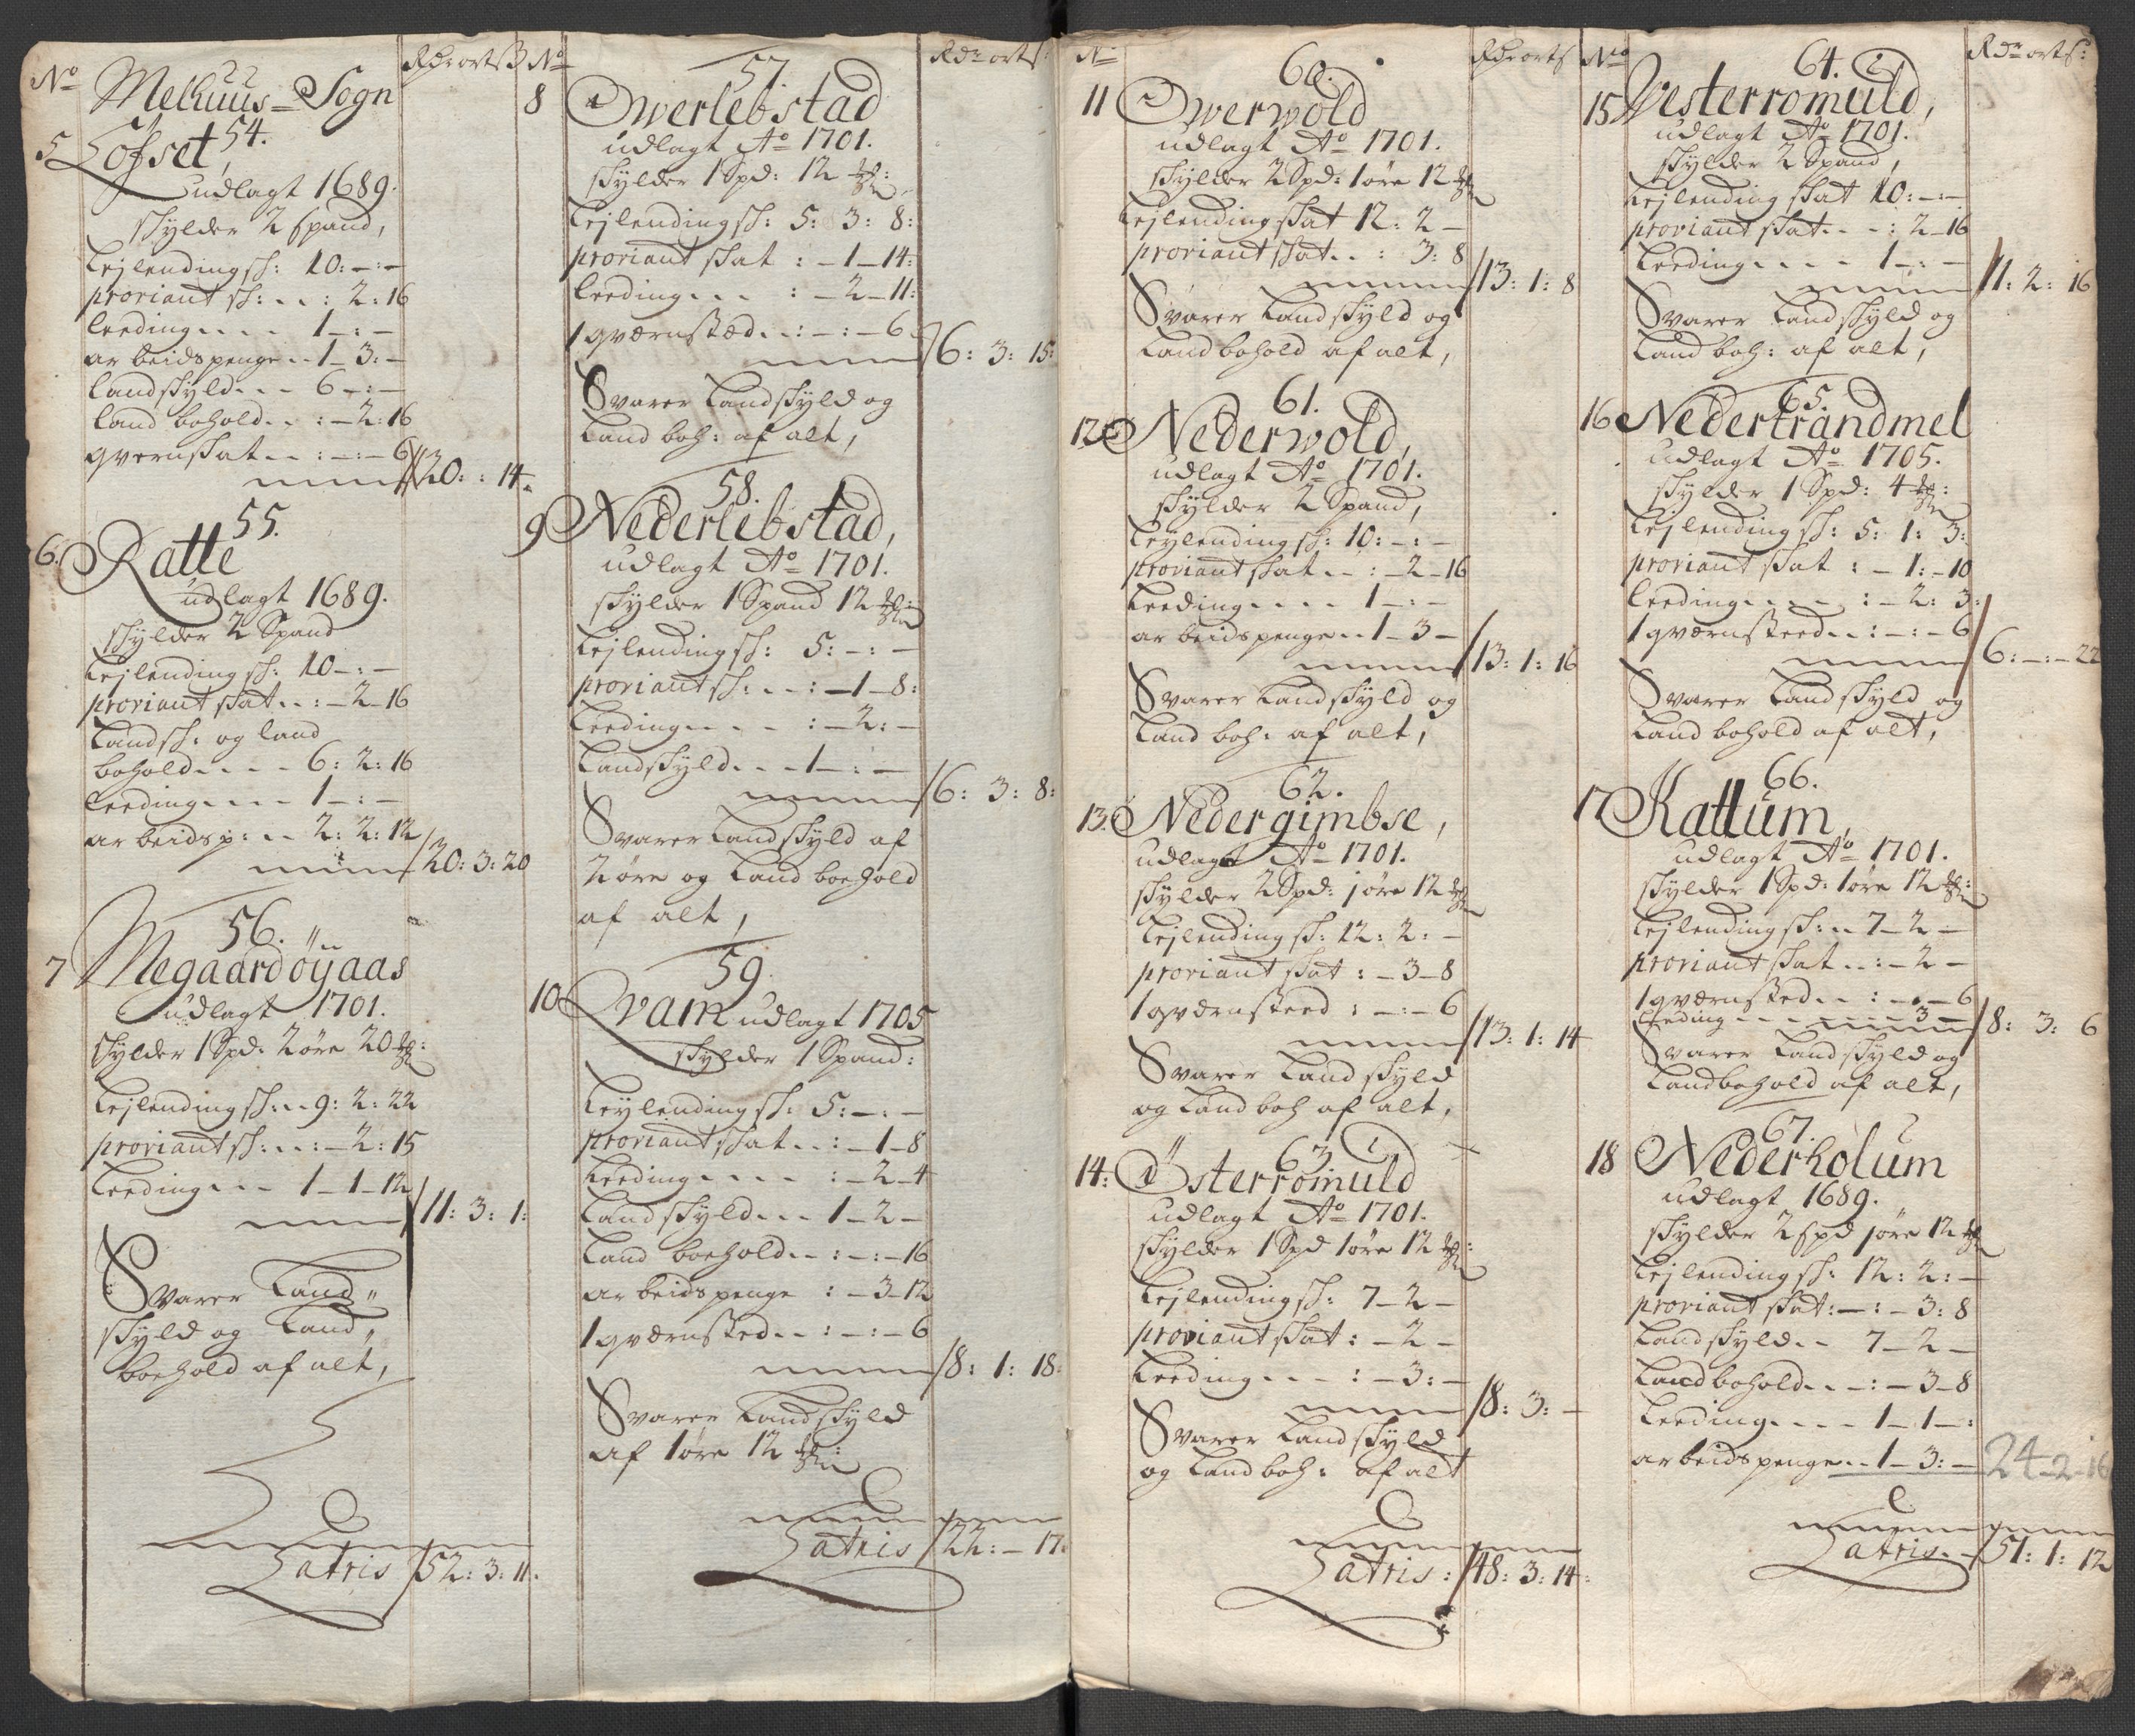 No Rdr ort ß
Melhuus Sogn
54.
5 Løfset,
udlagt 1689.
skylder 2 spand,
Leilending sk: 10:-:-
proviant sk: . . : 2:16
Leeding . . . . 1-:-
arbeidspenge . . 1-3:-
Landskyld . . - 6-:-
Land bohold . . : -2:16
qvernskat . . : -:-6
20: : 14
55.
6. Ratte
udlagt 1689.
skylder 2 Spand
Leilending sk: 10-:-
proviant skat . . : -2-16
Landsk: og land
bohold . . . . 6: 2:16
Leeding . . . . 1-:-
arbeidsp: . . 2: 2: 12
20: 3: 20
56.
7 Megaardøÿaas
udlagt 1701.
skylder 1 Spd: 2 øre 20
Leilending sk: . . 9: 2: 22
proviant sk: . . : -2: 15
Leeding . . - 1-1-12
11: 3: 1:
Svarer Land„
skyld og Land„
boehold af alt,
Latris 52: 3: 11.
No Rdr ort ß
57.
8 Owerlebstad
udlagt Ao 1701.
skylder 1 Spd: 12
Leilending sk: 5: 3: 8:
proviant skat : -1-14:
Leeding . . . : -2-11:
1 qværnstæd . . : -:-6
6: 3: 15:
Svarer Landskyld og
Land boh: af alt,
58.
9 Nederlebstad,
udlagt Ao 1701.
skylder 1 Spand 12
Leilending sk: 5:-:-
proviant sk: . . : -1-8:
Leeding . . - - : -2:-
Landskyld . . - 1-:-
6: 3: 8:
Svarer Landskyld af
2 øre og Land boehold
af alt,
59.
10 Qvam udlagt 1705
skylder 1 Spand:
Leÿlending sk: 5:-:-
proviant skat . . : -1-8
Leeding . . . . : -2-4
Landskyld . . . 1-2-
Land boehold . . : -:-16
arbeidspenge : -3-12
1 qværnsted . . : -:-6
8: 1: 18:
Svarer Landskyld
af 1 øre 12
Latris 22:-17.
No Rdr ort ß
60.
11 Owerwold
udlagt Ao 1701.
skylder 2 Spd: 1 øre 12
Leilending skat 12: 2-
proviant skat . . : 3: 8
13: 1: 8
Svarer Landskyld og
Land bohold af alt,
61.
12 Nederwold,
udlagt Ao 1701.
skylder 2 Spand,
Leÿlending sk: 10:-:-
proviant skat . . : -2-16
Leeding . . . . 1-:-
arbeidspenge . . 1-3-
13: 1: 16
Svarer Landskyld og
Land boh: af alt,
62.
13. Nedergimbse,
udlagt Ao 1701.
skylder 2 Spd: 1 øre 12
Leilending sk: 12: 2:-
proviant skat : -3-8
1 qværnsteed : -:-6
13: 1: 14
Svarer Landskyld
og Land boh af alt,
63
14: Østerromuld
udlagt Ao 1701.
skylder 1 Spd 1 øre 12
Leilending sk: 7-2-
proviant skat : -2-
Leeding . . - : -3:-
8: 3:-
Svarer Landskyld
og Land boh: af alt
Latris : 48: 3: 14:
No Rdr ort ß:
64.
15 Vesterromuld,
udlagt Ao 1701.
skylder 2 Spand,
Leilending skat 10:-:-
proviant skat . . - : 2-16
Leeding . . . - 1-:-
11: 2: 16
Svarer Landskyld og
Land boh: af alt,
65.
16 Nedertrandmel
udlagt Ao 1705.
skylder 1 Spd: 4
Leilending sk: 5: 1: 3:
proviant skat : -1:-10
Leeding . . . - : -2: 3:
1 qværnsteed . . : -:-6
6:-:-22
Svarer Landskyld og
Land bohold af alt,
66.
17 Kattum,
udlagt Ao 1701.
skylder 1 Spd: 1 øre 12
Leilending sk: . . 7-2-
proviant skat . . : -2-
1 qværnsted . . : -:-6
Leeding . . - - - - 3-
8: 3: 6
Svarer Landskyld og
Landbohold af alt,
67.
18 Nederholum
udlagt 1689.
skylder 2 spd 1 øre 12
Leilending sk: 12: 2:-
proviant skat: -: -3: 8
Landskyld . . - 7-2-
Landbohold . . - : -3-8
Leeding . . . - 1-1-:
arbeidspenge . . 1-3:- 24-2-16
Latris . - 51: 1: 12